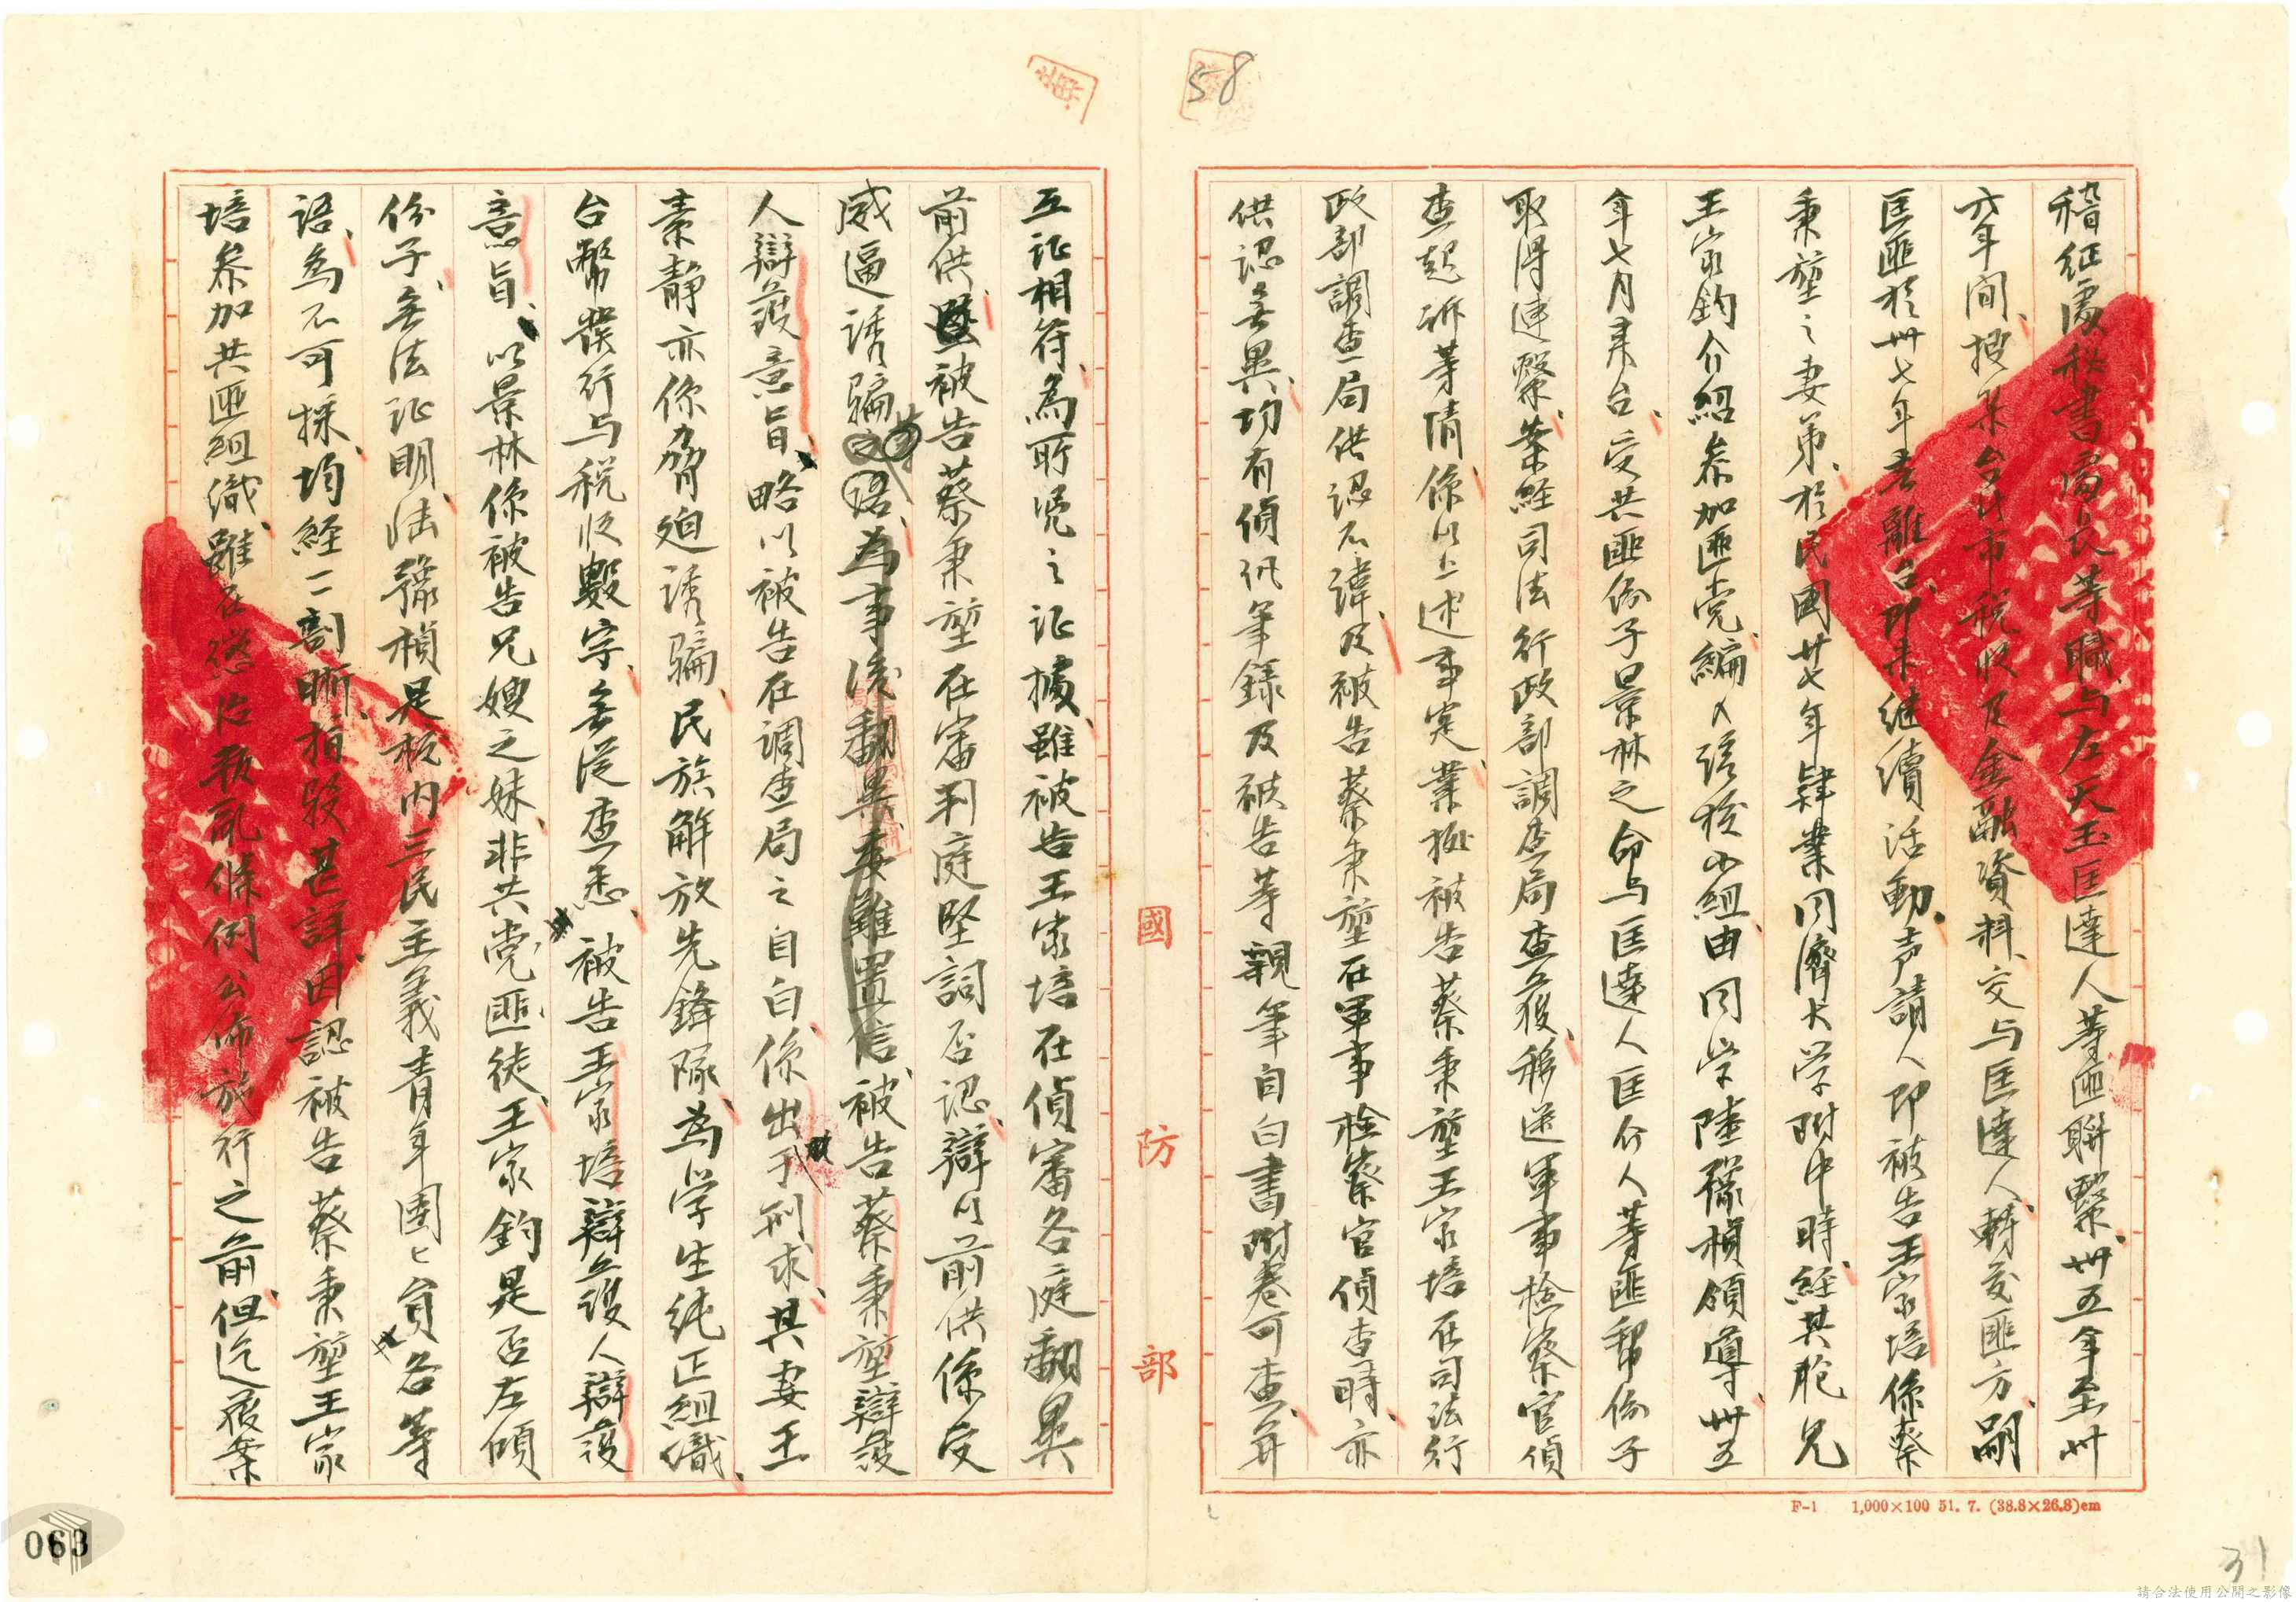 58
稽征處秘書處長等職、与左天玉匡達人等匪聯繫、卅五年至卅
六年間、搜集台北市稅收及金融資料、交与匡達人轉交匪方、嗣
匡匪於卅七年春離台、即未继續活動、声請人即被告王家培係蔡
秉堃之妻弟、於民國廿七年肄業同濟大学附中時、經其胞兄
王家鈞介紹參加匪党、編入該校小組、由同学陸豫楨領導、卅五
年七月来台、受共匪份子景林之命与匡達人匡介人等匪幫份子
取得連繫、案經司法行政部調查局查獲、移送軍事檢察官偵
查起訴等情、係以上述事実、業據被告蔡秉堃王家培在司法行
政部調查局供認不諱、及被告蔡秉堃在軍事檢察官偵查時、亦
供認無異、均有偵訊筆錄及被告等親筆自白書附卷可查、并
互証相符、為所憑之証據、雖被告王家培在偵審各庭翻異
前供、暨被告蔡秉堃在審判庭堅詞否認、辯以前供係受
威逼誘騙等語、為事後翻異、委難置信、被告蔡秉堃辯護
人辯護意旨、略以被告在調查局之自白、係出于刑求、其妻王
素靜亦係脅廹誘騙、民族解放先鋒隊、為学生純正組織、
台幣發行与税收數字、無從查悉、被告王家培辯護人辯護
意旨、以景林係被告兄嫂之妹、非共党匪徒、王家鈞是否左傾
份子、無法証明、陸豫楨是校内三民主義青年團團員各等
語、為不可採、均經一一剖晰、指駁甚詳、因認被告蔡秉堃王家
培參加共匪組織、雖在懲治叛亂條例公佈施行之前、但迄獲案
國防部
F-1 1,000×100 51. 7. (38.8×26.8)cm
063
31
請合法使用公開之影像